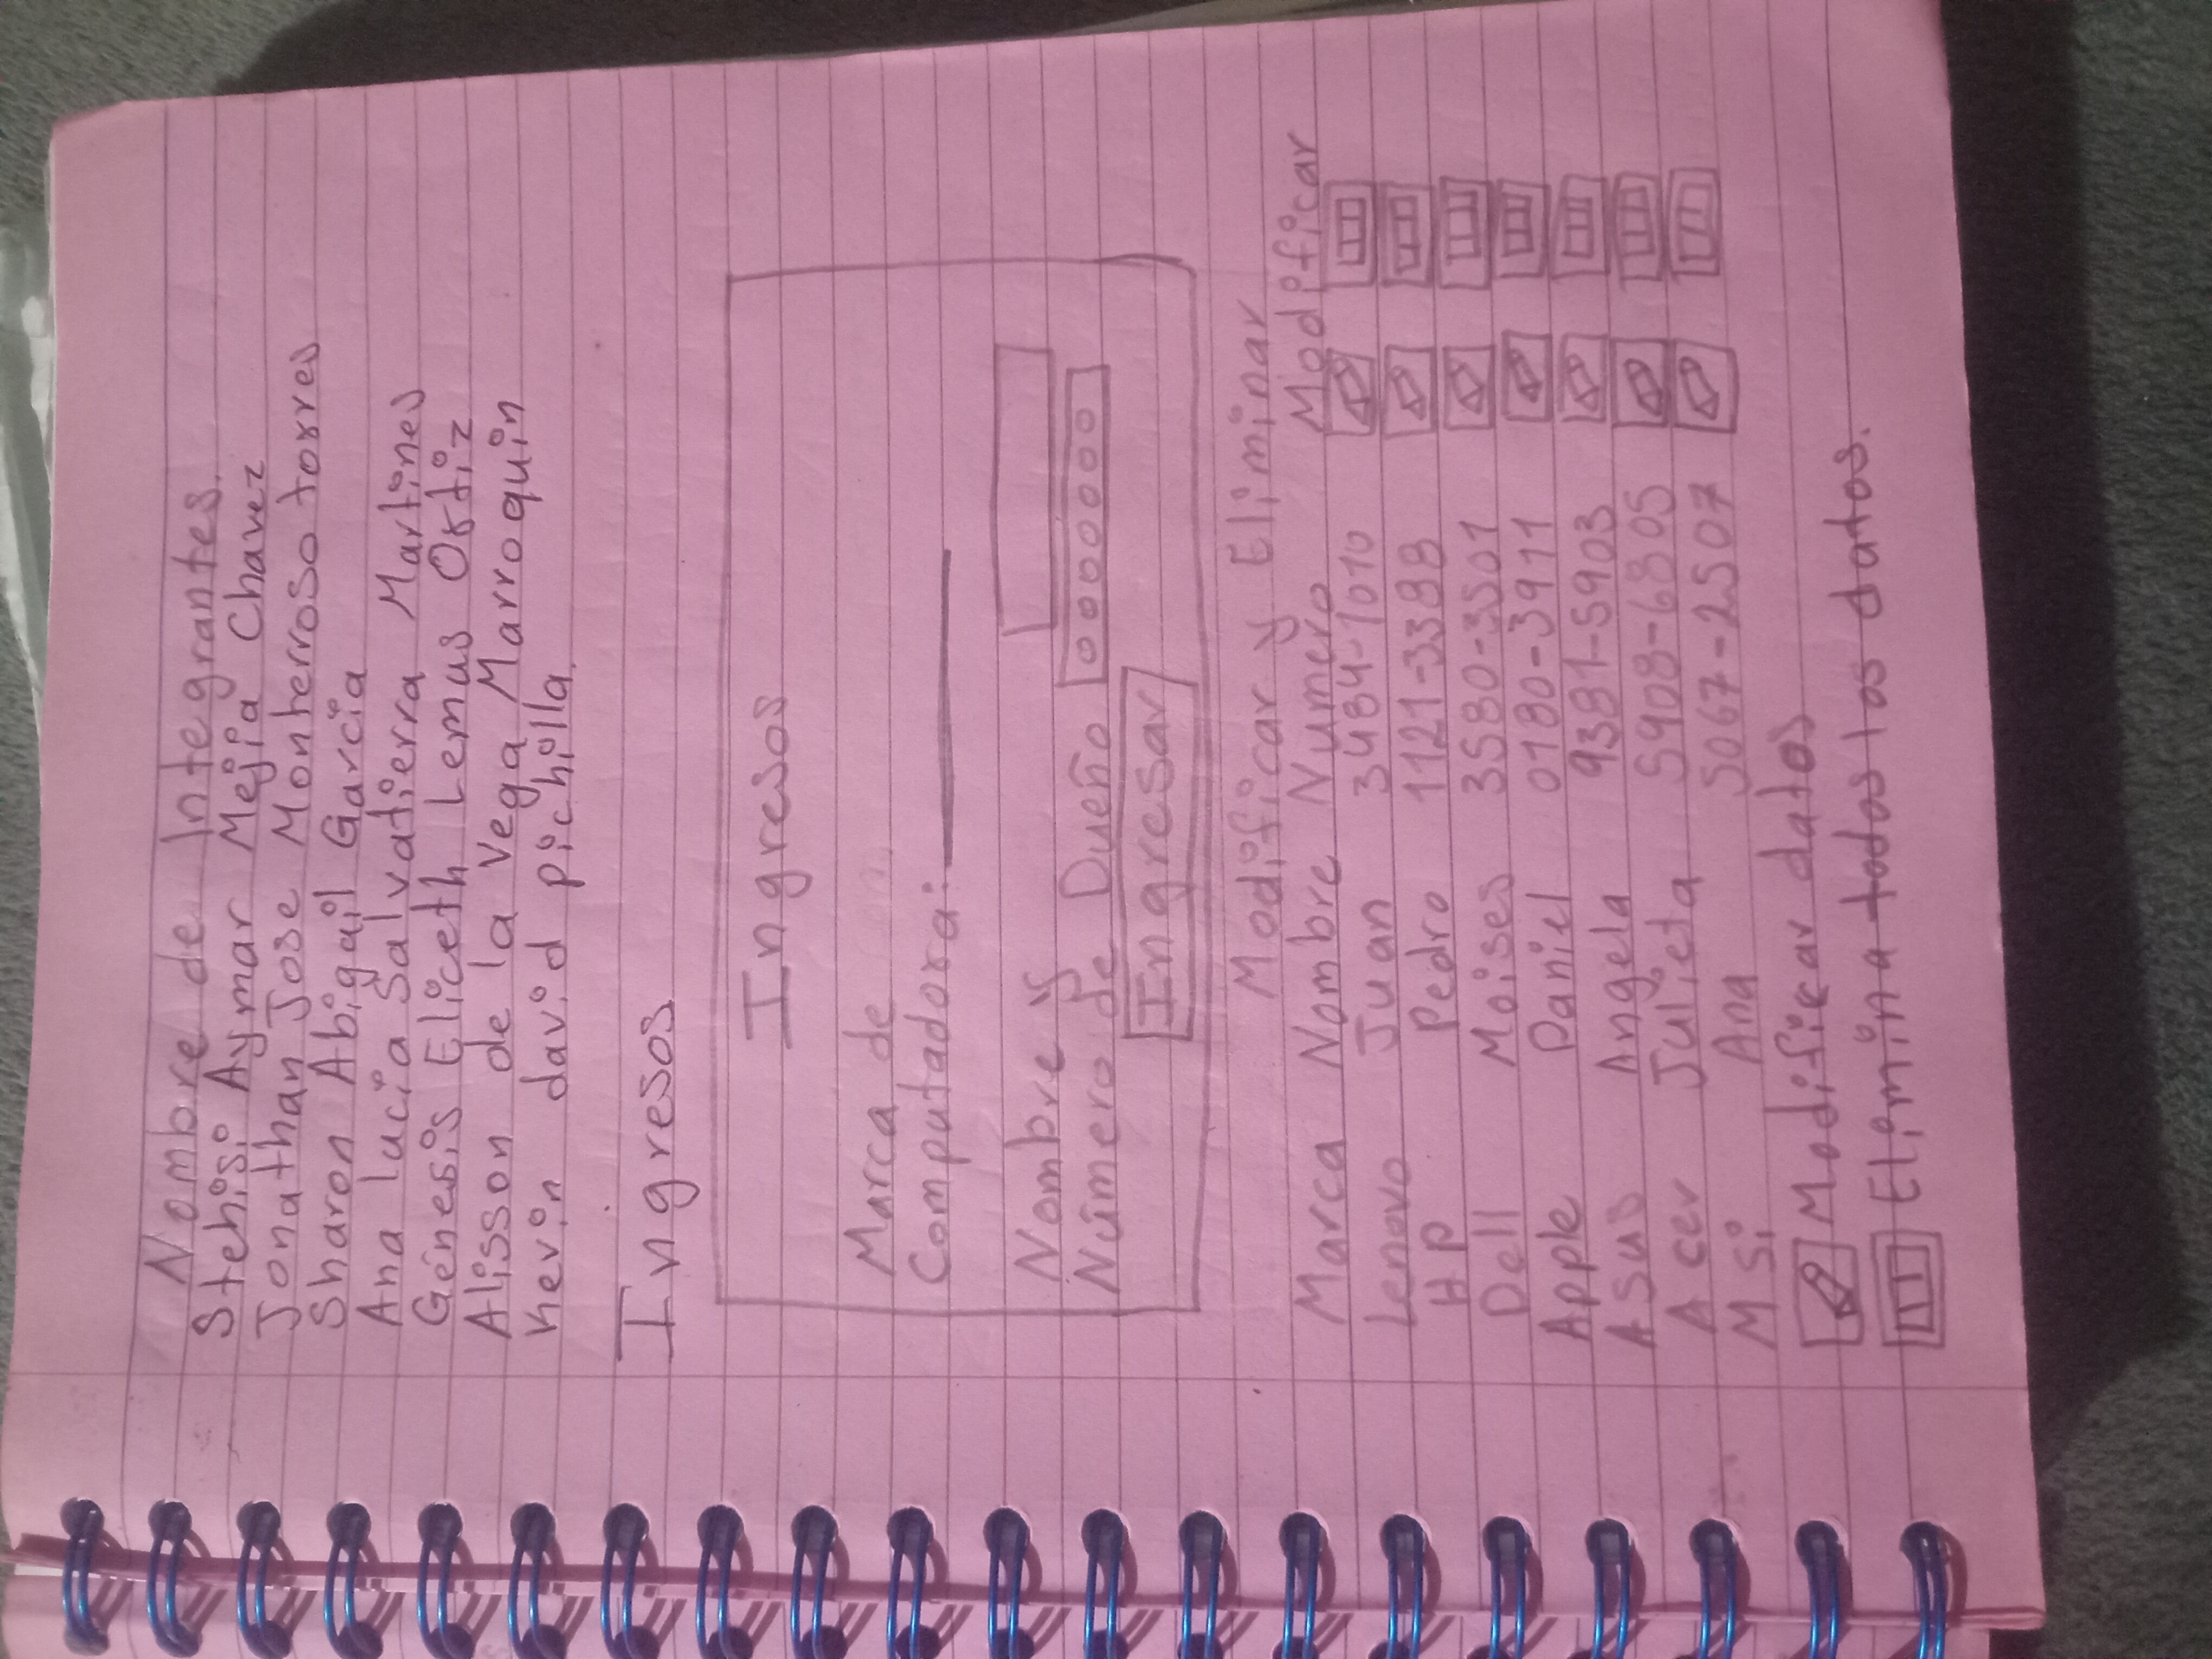 Nombre de Integrantes.
Stehisi Aymar Mejia Chavez
Jonathan Jose Monterroso torres
Sharon Abigail Garcia
Ana lucia Salvatierra Martines
Génesis Eliceth Lemus Ortiz
Alisson de la Vega Marroquin
Kevin david pichilla.
Ingresos
Ingresos
Marca de
Computadora:
Nombre y
Número de Dueño
Ingresar
Modificar y Eliminar
Marca Nombre Número Modificar
Lenovo Juan 3484-1010
Hp Pedro 1121-3388
Dell Moises 3580-3501
Apple Daniel 0180-3911
Asus Angela 9381-5903
Acer Julieta 5908-6805
Msi Ana 5067-2507
Modificar datos
Elimina todos los datos.